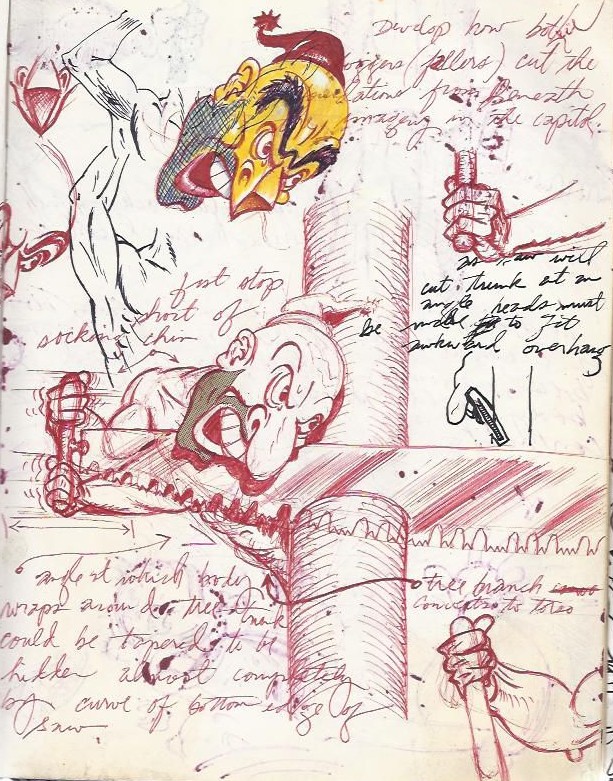 Develop how both
loggers (fellers) cut the
from beneath
imaging in the capitol.
as saw will
cut trunk at an
angle heads must
be made to fit
awkward overhang
fist stop
short of
socking chin
angle at which body
wraps around tree trunk
could be tapered to be
hidden almost completely
by curve of bottom edge of
saw
tree branch
connects to torso